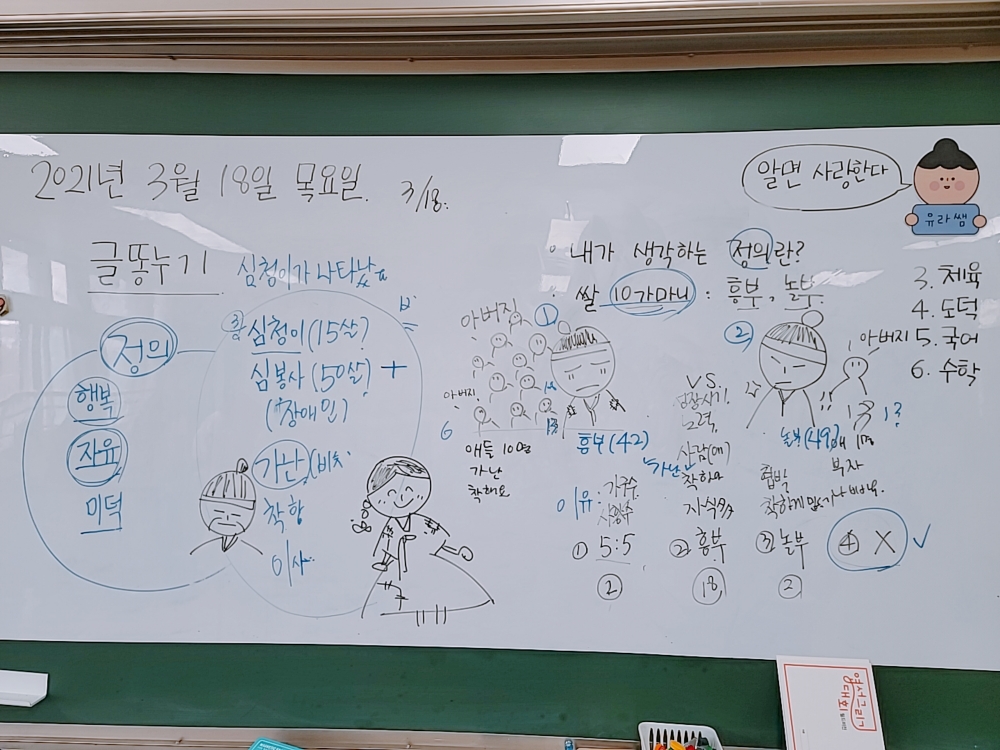 2021년 3월 18일 목요일. 3/18.
알면 사랑한다
유라쌤
글똥누기
심청이가 나타났다
정의
행복
자유
미덕
③ 심청이 (15살)
심봉사 (50살) +
(장애인)
가난
착함
내가 생각하는 정의란?
쌀 10가마니 : 흥부, 놀부.
아버지
①
아버지
6
애들 10명
가난
착해요
흥부 (42)
가난
이유 : 가구수
식량수
VS.
노력,
착하다
②
아버지
1?
놀부 (49)
부자
협박
① 5:5
②
② 흥부
18
③ 놀부
2
④ X ✓
3. 체육
4. 도덕
5. 국어
6. 수학